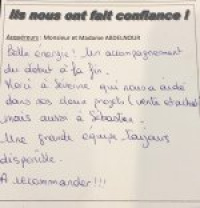 Ils nous ont fait confiance !
Acquéreurs : Monsieur et Madame ABDELNOUR
Belle énergie ! Un accompagnement
du début à la fin.
Merci à Séverine qui nous a aidé
dans nos deux projets (vente et achat)
mais aussi à Sébastien.
Une grande équipe toujours
disponible.
A recommander !!!